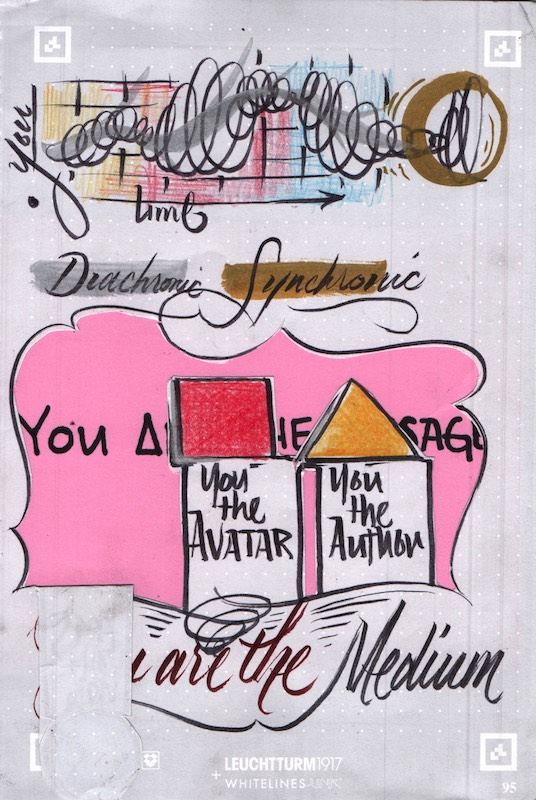 You
Diachronic Synchronic
YOU A HE SAGE
You the AVATAR
You the Author
u are the Medium
LEUCHTTURM1917
+ WHITELINES LINK
95